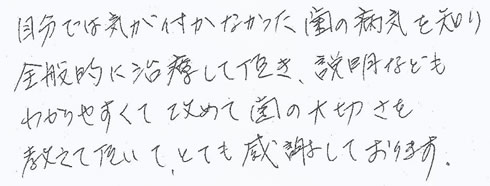 自分では気が付かなかった歯の病気を知り
全般的に治療して頂き、説明なども
わかりやすくて改めて歯の大切さを
教えて頂いて、とても感謝しております。